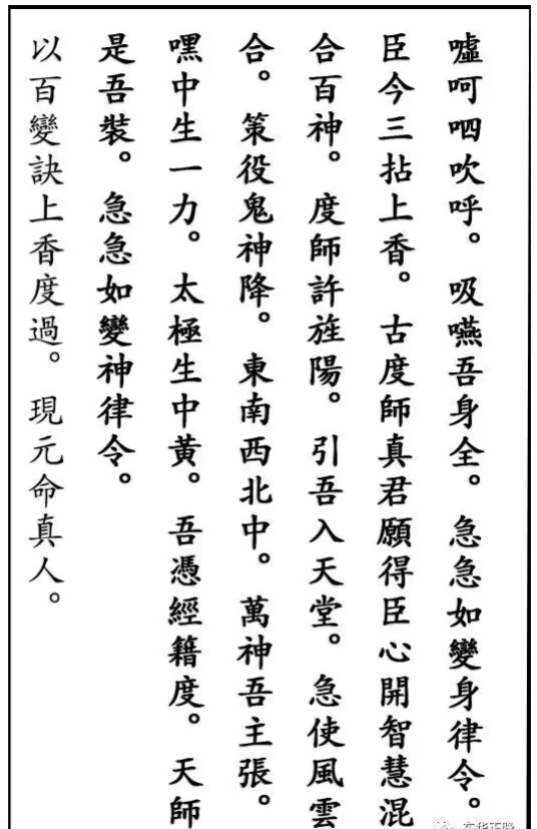 噓呵呬吹呼。吸嚥吾身全。急急如變身律令。
臣今三拈上香。古度師真君願得臣心開智慧混
合百神。度師許旌陽。引吾入天堂。急使風雲
合。策役鬼神降。東南西北中。萬神吾主張。
嘿中生一力。太極生中黃。吾憑經籍度。天師
是吾裝。急急如變神律令。
以百變訣上香度過。現元命真人。